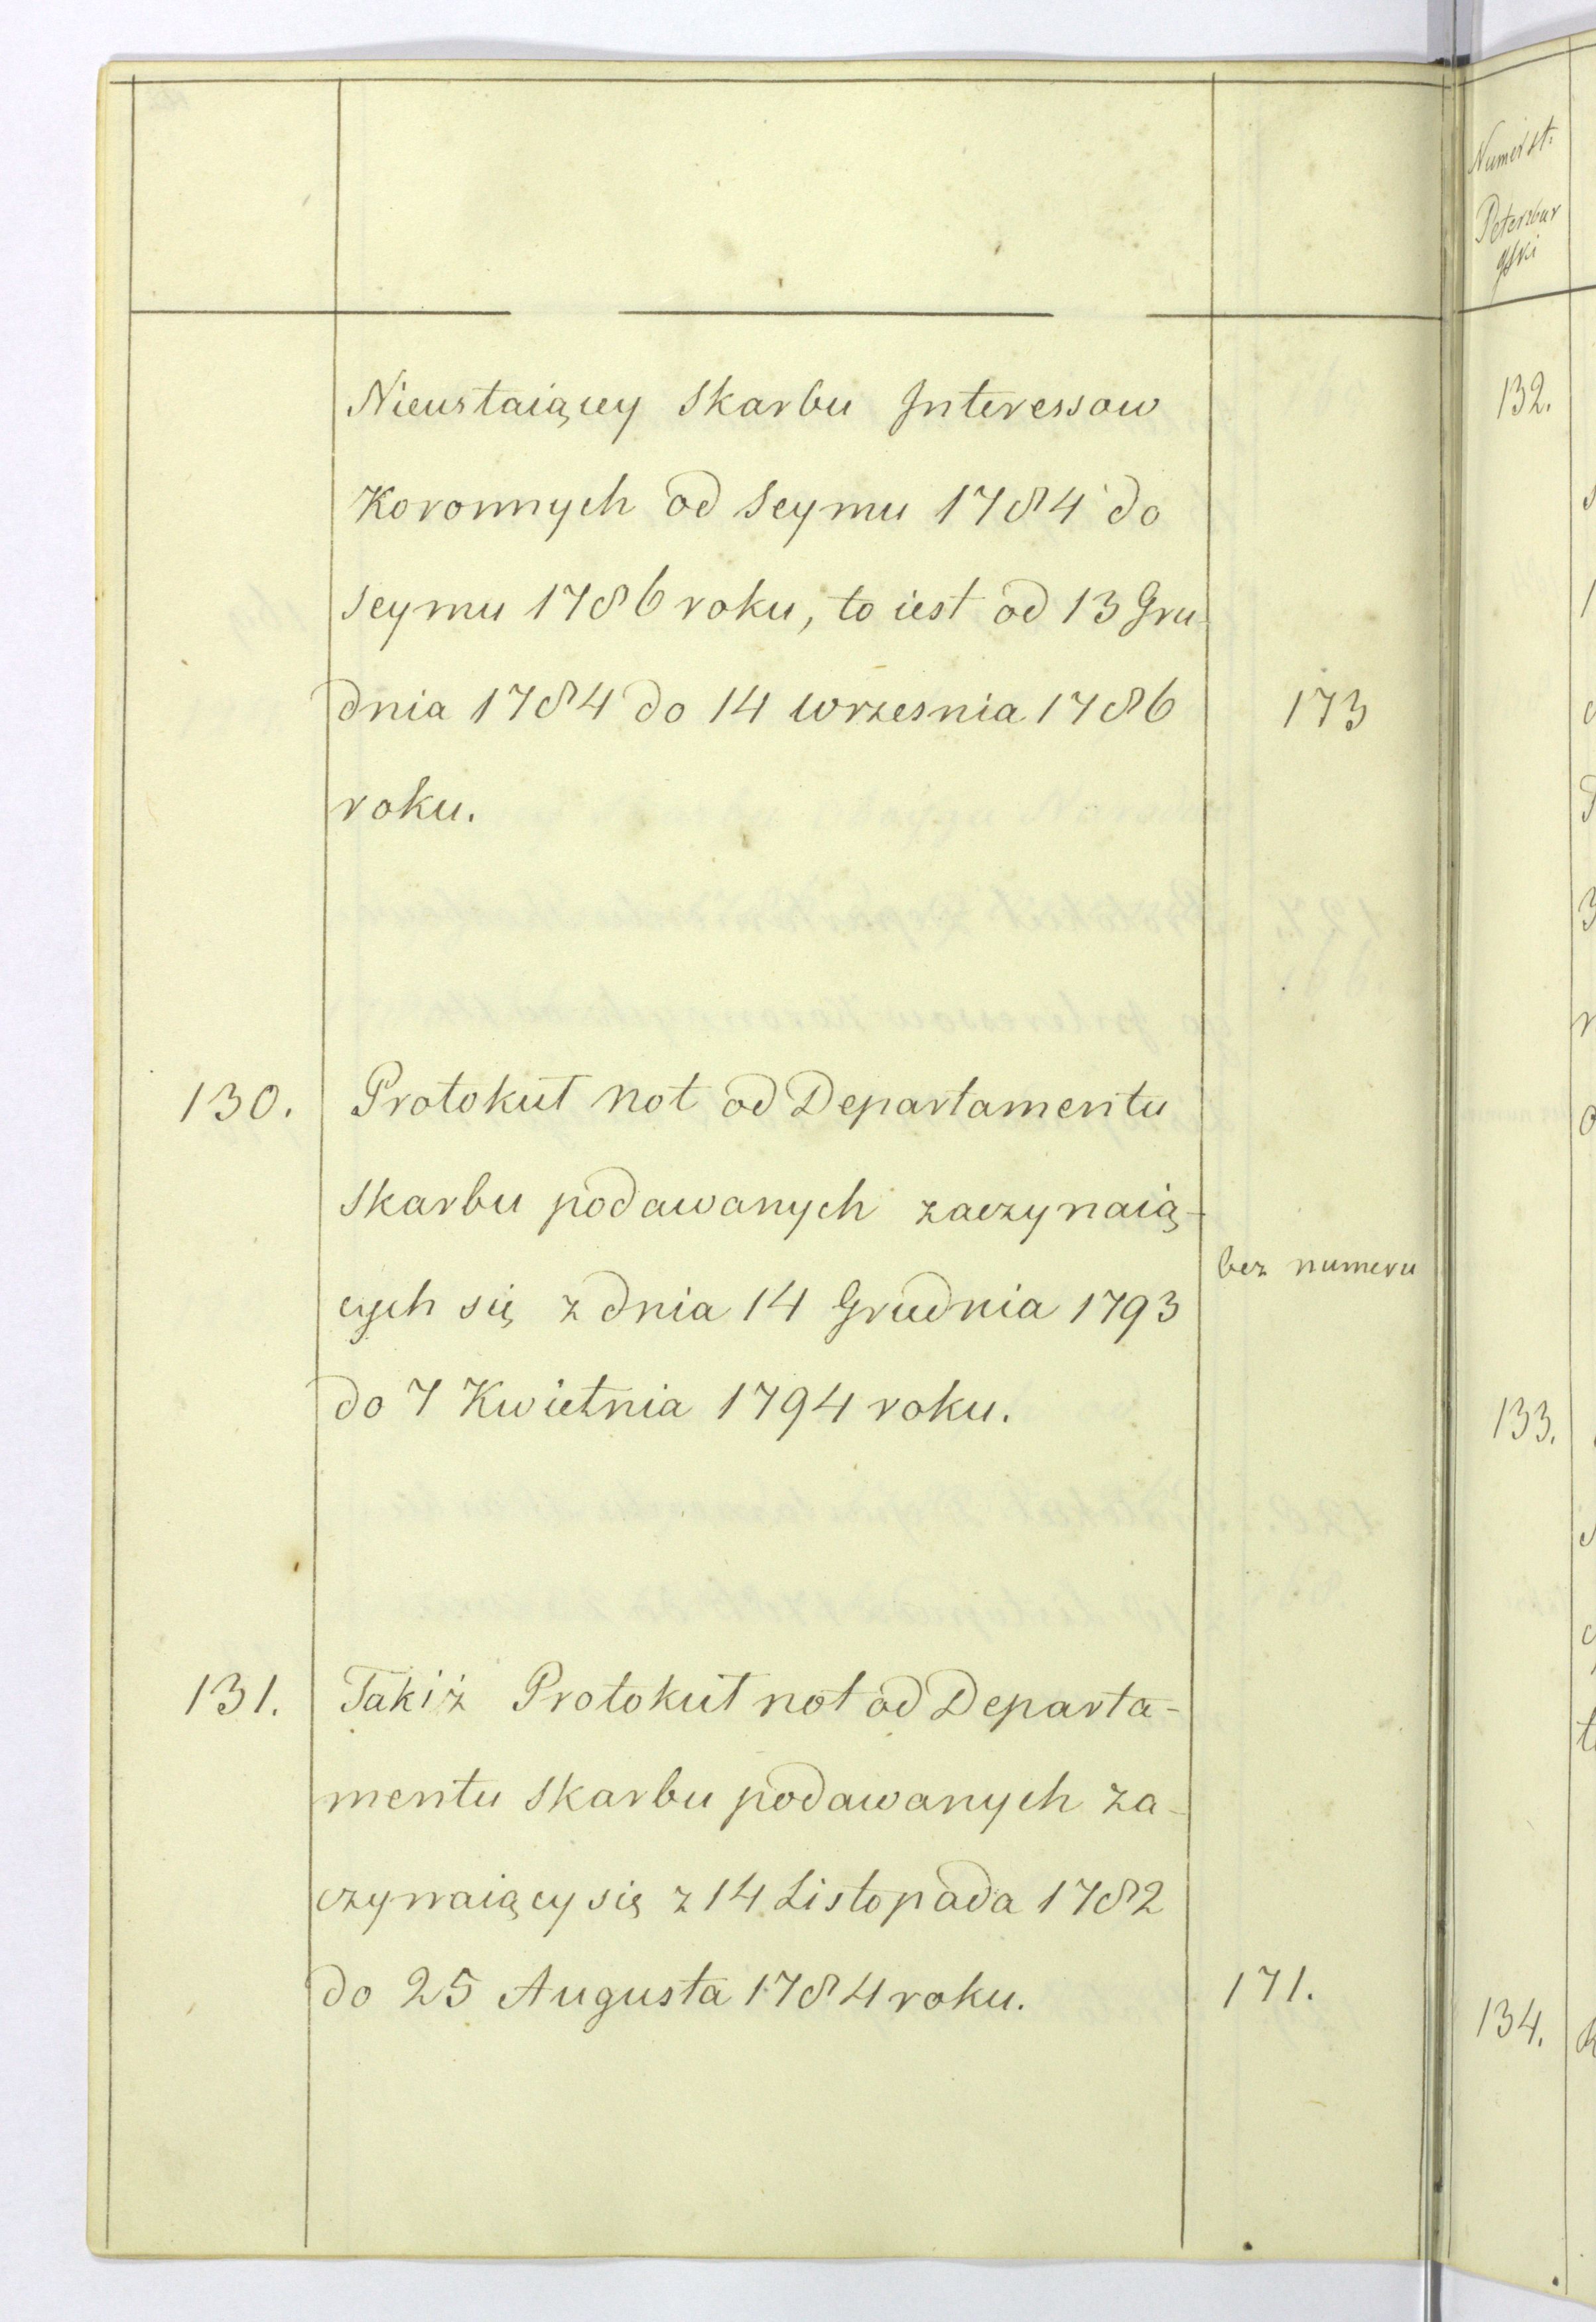 Nieustaiącey Skarbu Interessow
Koronnych od Seymu 1784 do
Seymu 1786 roku, to iest od 13 Gru-
dnia 1784 do 14 Wrzesnia 1786 173
roku.
130. Protokuł not od Departamentu
Skarbu podawanych zaczynaią-
bez numeru
cych się z dnia 14 Grudnia 1793
do 7 Kwietnia 1794 roku.
131. Takiż Protokuł not od Departa-
mentu Skarbu podawanych za-
czynaiący się z 14 Listopada 1782
do 25 Augusta 1784 roku. 171.
Numer st.
Peterzbur
gski
132.
133.
134.